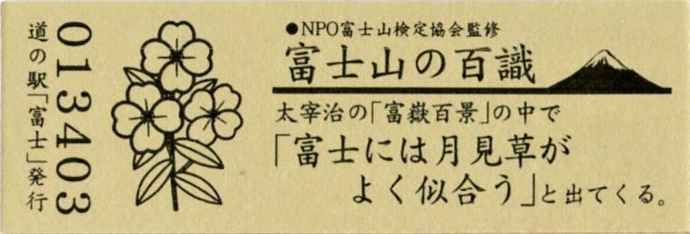 ●NPO富士山検定協会監修
富士山の百識
太宰治の「富嶽百景」の中で
「富士には月見草が
よく似合う」と出てくる。
013403
道の駅「富士」発行